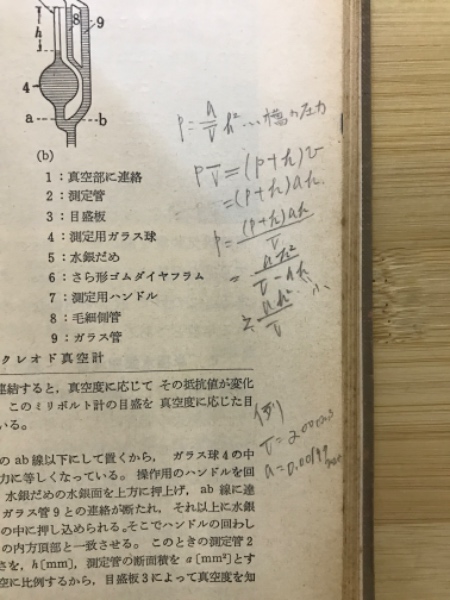 h
8
9
4
a
b
(b)
1：真空部に連絡
2：測定管
3：目盛板
4：測定用ガラス球
5：水銀だめ
6：さら形ゴムダイヤフラム
7：測定用ハンドル
8：毛細側管
9：ガラス管
クレオド真空計
連結すると，真空度に応じて その抵抗値が変化
このミリボルト計の目盛を 真空度に応じた目
いる。
の ab 線以下にして置くから， ガラス球4の中
力に等しくなっている。 操作用のハンドルを回
水銀だめの水銀面を上方に押上げ，ab 線に達
ガラス管9との連絡が断たれ， それ以上に水銀
の中に押し込められる。そこでハンドルの回わし
の内方頂部と一致させる。 このときの測定管2
さを，h〔mm〕，測定管の断面積を a〔mm²〕とす
空に比例するから，目盛板3によって真空度を知
P = a/V h² … の圧力
PV = (P+h)v
= (P+h)ah
P = (P+h)ah/V
= ah²/V-ah
≒ ah²/V
例